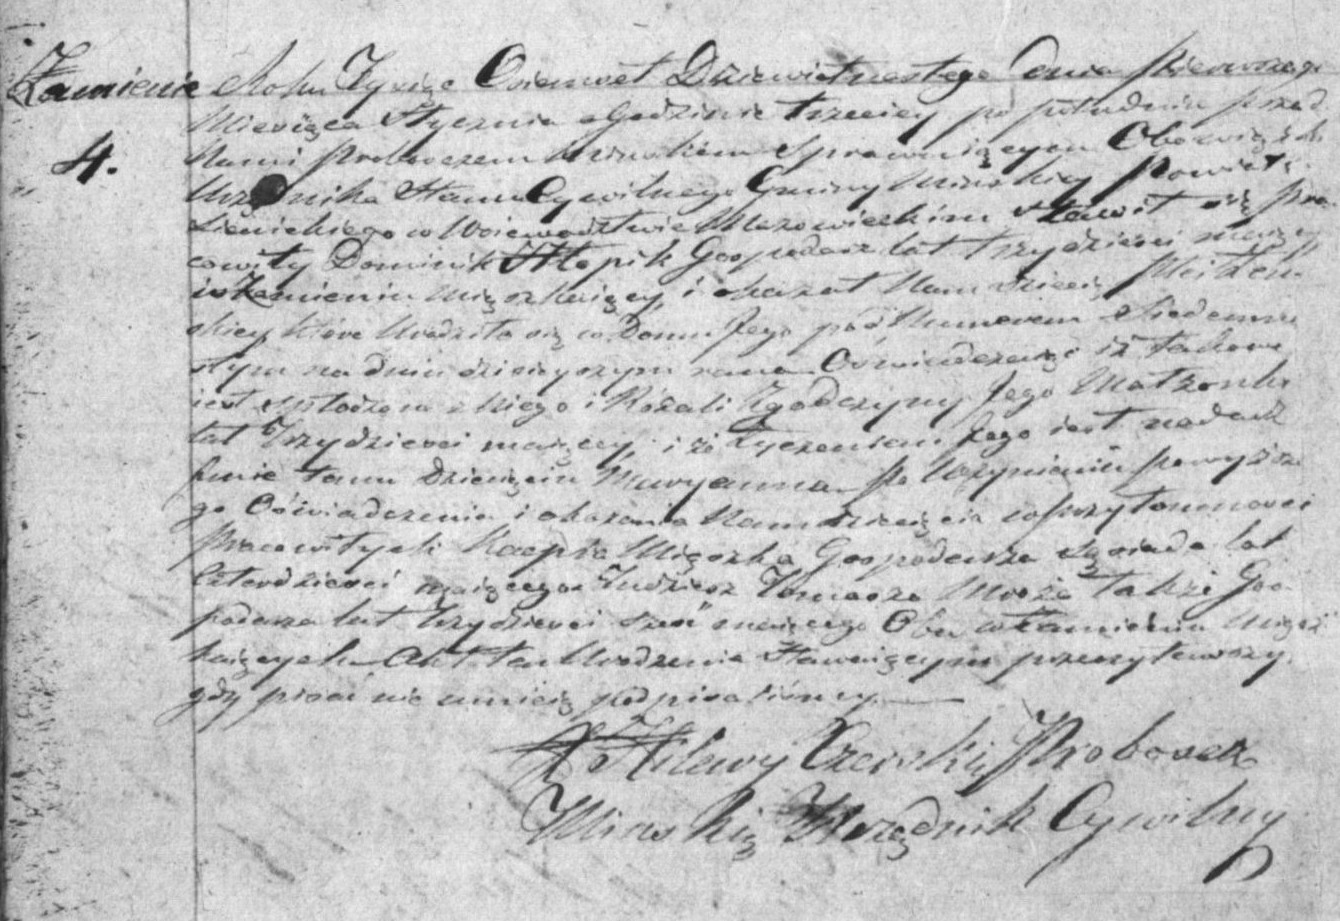 Zamienie Roku Tysiąc Osiemset Dziewietnastego dnia Pierwszego
4.
Miesiąca Stycznia o Godzinie trzeciey po południu przed
Nami Proboszczem Minskiem Sprawuiącym Obowiązki
Urzędnika Stanu Cywilnego Gminy Minskiey Powiatu
Siennickiego w Woiewodztwie Mazowieckim Stawił się Pra
cowity Dominik Gospodarz lat trzydzieści maiący
w Zamieniu Mięszkaiący i okazał Nam dziecię Płci Żeń
skiey które Urodziło się w Domu Jego pod Numerem Siedemna
stym na dniu dzisieyszym rano Oswiadczaiąc iż takowe
iest spłodzone z Niego i Rozalii Jego Małżonki
lat Trzydzieści maiącey i że Życzeniem Jego iest nadać
Imie temu Dziecięciu Maryanna Po Uczynieniu powyższe
go Oświadczenia i okazania Nam dziecięcia w przytomności
Pracowitych Kacpra Gospodarza Sąsiada lat
Czterdzieści maiącego Tudziesz Tomasza także Gos
podarza lat trzydzieści sześć maiącego Obu w Zamieniu Mięsz
kaiących Akt ten Urodzenia Stawaiącym przeczytawszy
gdy pisać nie umieią podpisalismy
X Hilary Proboszcz
Minski Urzędnik Cywilny